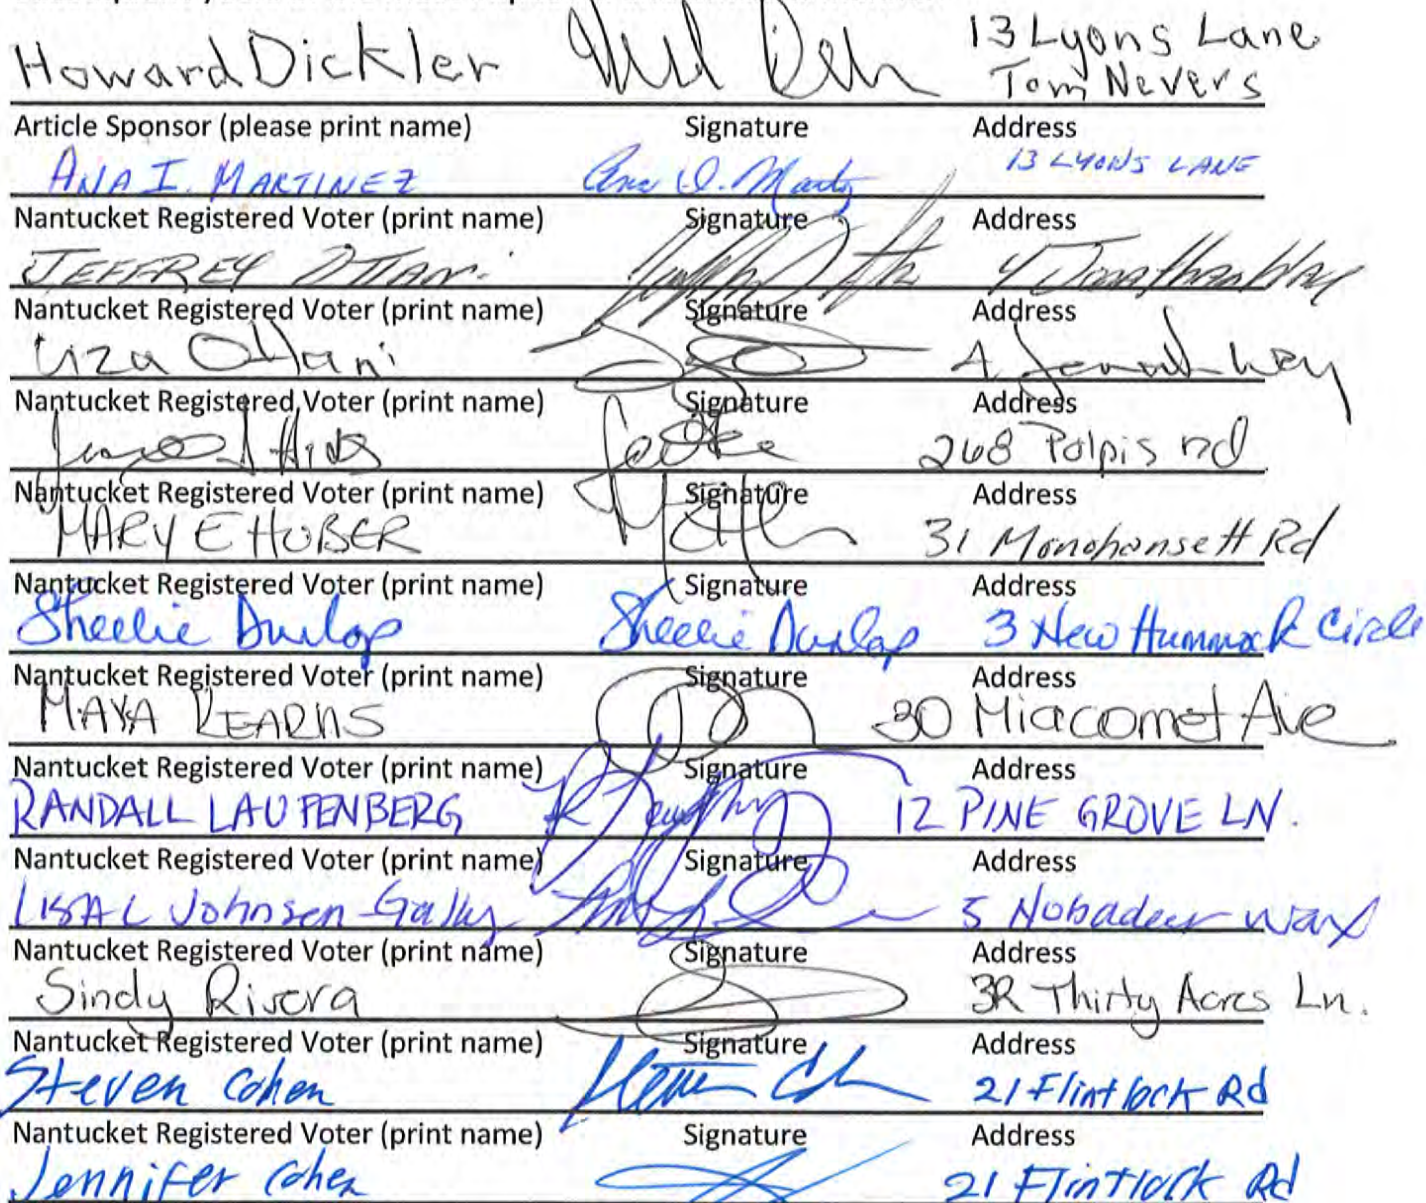 Howard Dickler 13 Lyons Lane
Tom Nevers
Article Sponsor (please print name) Signature Address
ANA I. MARTINEZ Ana I. Martz 13 LYONS LANE
Nantucket Registered Voter (print name) Signature Address
JEFFREY OTTANI 4 Jonathan Way
Nantucket Registered Voter (print name) Signature Address
Liza Ottani Way
Nantucket Registered Voter (print name) Signature Address
268 Polpis rd
Nantucket Registered Voter (print name) Signature Address
MARY E HUBER 31 Monohansett Rd
Nantucket Registered Voter (print name) Signature Address
Sheelie Dunlop Sheelie Dunlop 3 New Hummock Circle
Nantucket Registered Voter (print name) Signature Address
MAYA KEARNS 30 Miacomet Ave
Nantucket Registered Voter (print name) Signature Address
RANDALL LAUFENBERG 12 PINE GROVE LN.
Nantucket Registered Voter (print name) Signature Address
LISA L Johnsen 5 Nobadeer Way
Nantucket Registered Voter (print name) Signature Address
Sindy Rivera 3R Thirty Acres Ln.
Nantucket Registered Voter (print name) Signature Address
Steven Cohen 21 Flintlock Rd
Nantucket Registered Voter (print name) Signature Address
Jennifer Cohen 21 Flintlock Rd